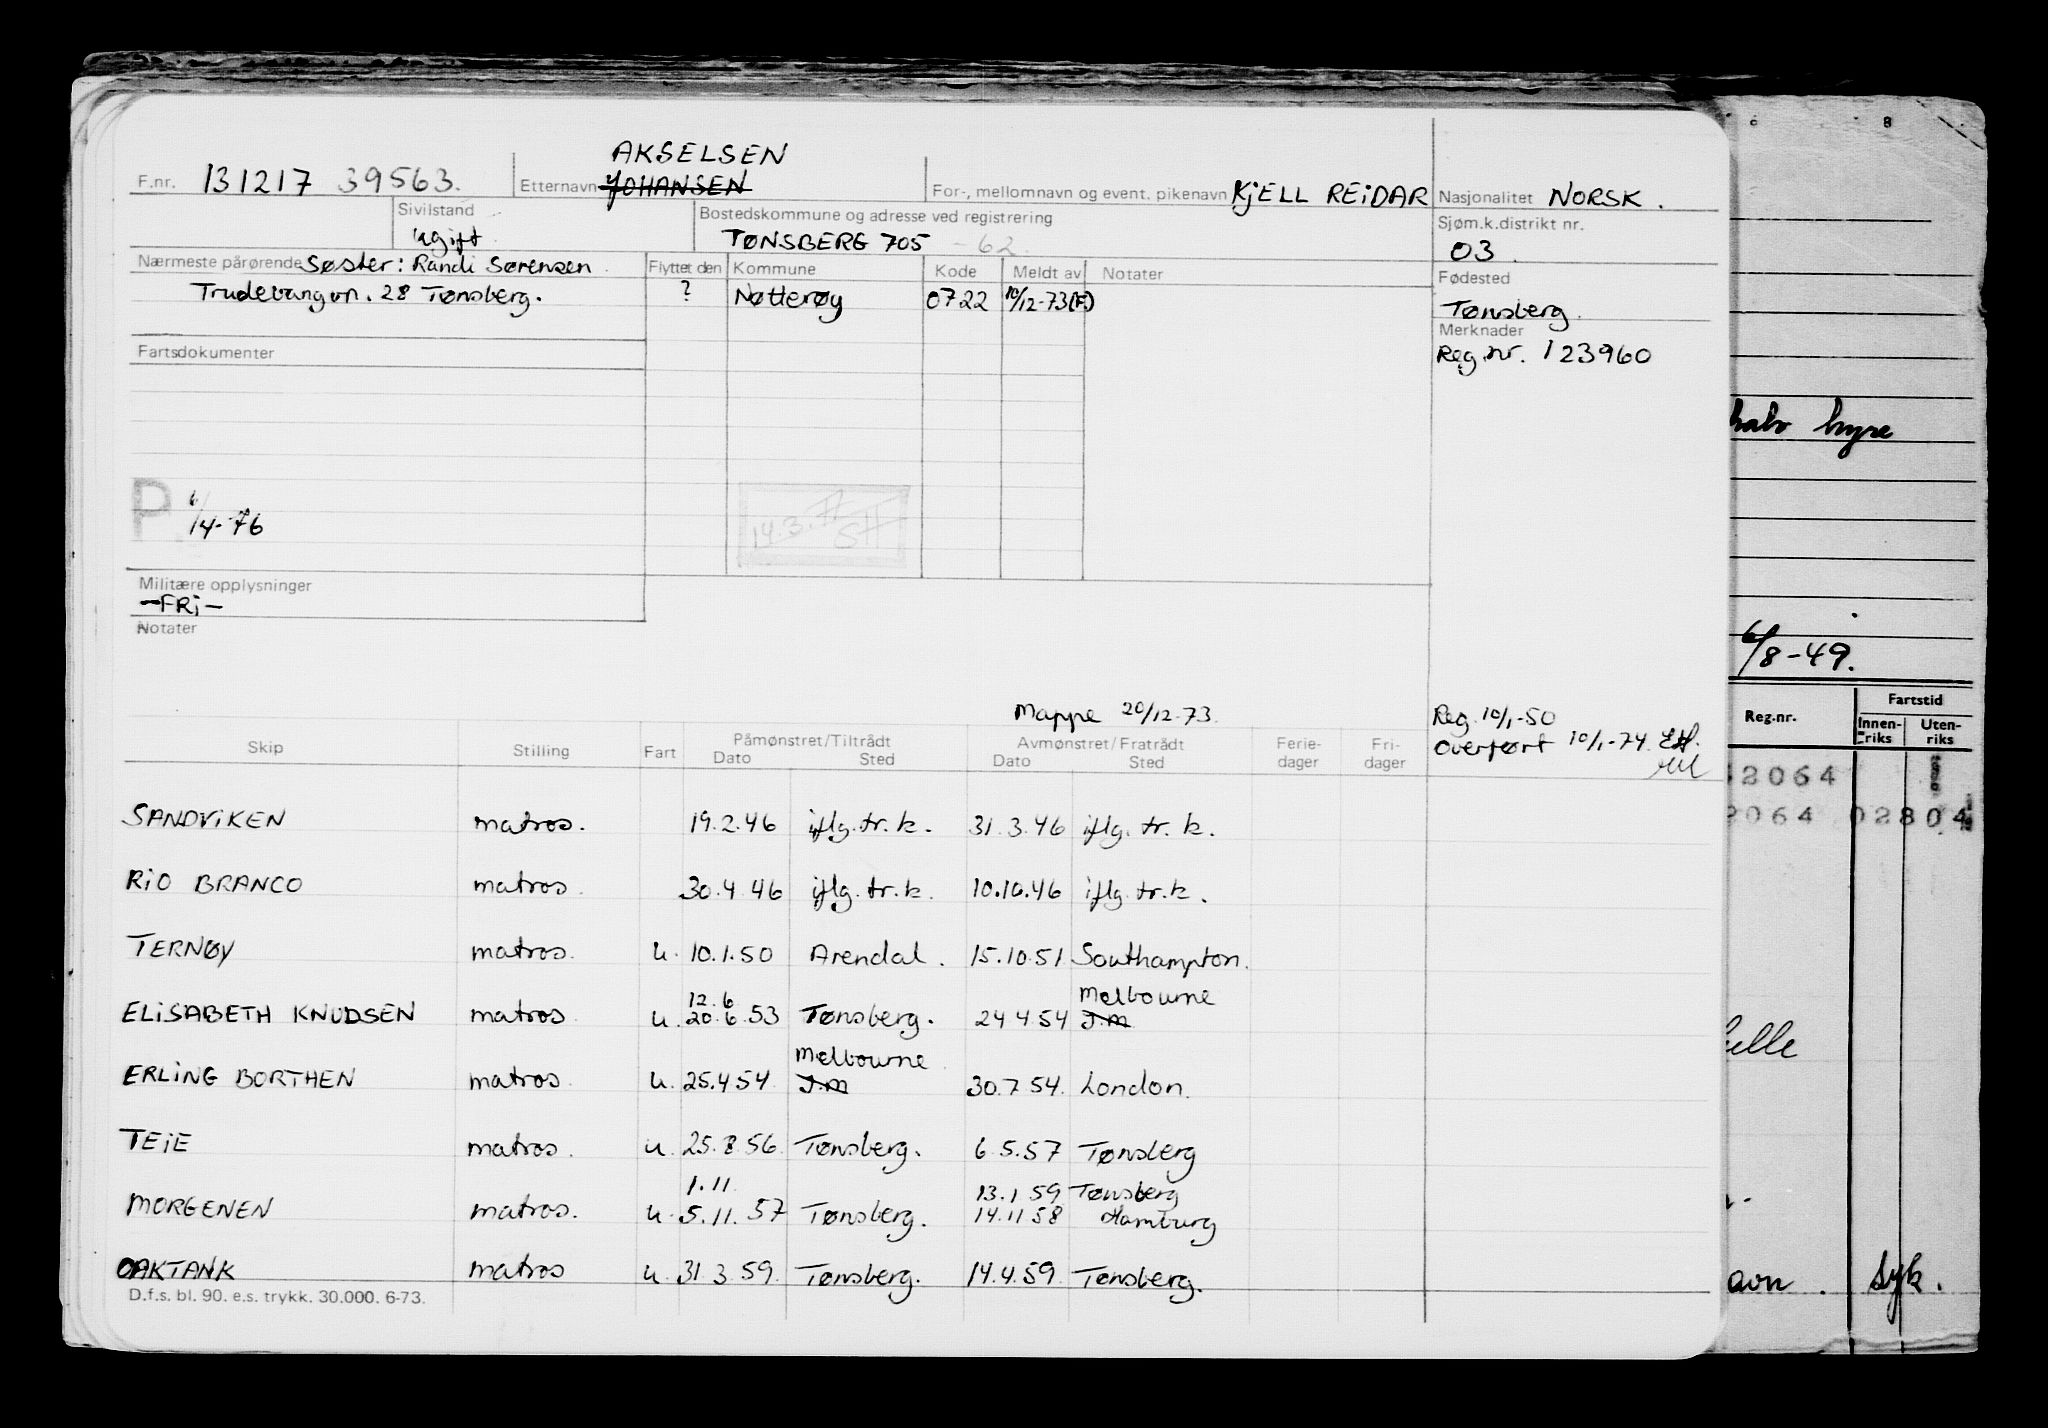 AKSELSEN
F.nr. 131217 39563. Etternavn JOHANSEN For-, mellomnavn og event. pikenavn KJELL REIDAR Nasjonalitet NORSK.
Sivilstand ugift. Bostedskommune og adresse ved registrering TØNSBERG 705 -62 Sjøm.k.distrikt nr. 03
Nærmeste pårørende Søster: Randi Sørensen Flyttet den Kommune Kode Meldt av Notater Fødested
Trudevangvn. 28 Tønsberg. ? Nøtterøy 0722 10/12-73(F.) Tønsberg.
Merknader
Fartsdokumenter Reg.nr. 123960
P. 6/4-76 14.3.77 SH
Militære opplysninger
-FRi-
Notater
Mappe 20/12-73. Reg. 10/1-50
Overført 10/1-74
Skip Stilling Fart Påmønstret/Tiltrådt Avmønstret/Fratrådt Ferie-dager Fri-dager
Dato Sted Dato Sted
SANDVIKEN matros. 19.2.46 iflg.tr.k. 31.3.46 iflg.tr.k.
RIO BRANCO matros 30.4.46 iflg.tr.k. 10.10.46 iflg.tr.k.
TERNØY matros. u. 10.1.50 Arendal. 15.10.51 Southampton.
12.6 Melbourne
ELISABETH KNUDSEN matros u. 20.6.53 Tønsberg. 24.4.54 J.m
Melbourne
ERLING BORTHEN matros u. 25.4.54 J.m 30.7.54. London.
TEIE matros. u. 25.8.56 Tønsberg. 6.5.57 Tønsberg
1.11. 13.1.59 Tønsberg
MORGENEN matros. u. 5.11.57 Tønsberg. 14.11.58 Hamburg
OAKTANK matros u. 31.3.59. Tønsberg. 14.4.59. Tønsberg.
D.f.s. bl. 90. e.s. trykk. 30.000. 6-73.
8
hyre
6/8-49.
Reg.nr. Fartstid
Innen-riks Uten-riks
2064
2064 02804
avn. syk.